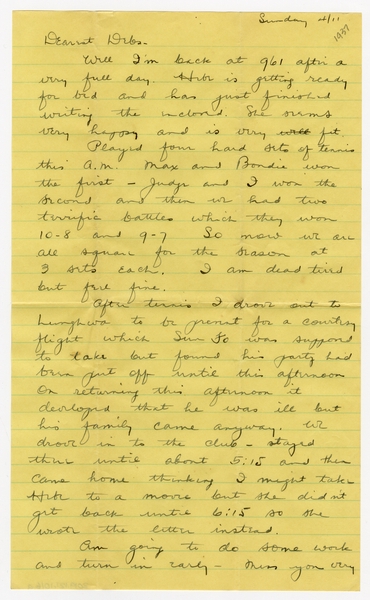 Sunday 4/11
1937
Dearest Debs.
Well I'm back at 961 after a
very full day. is getting ready
for bed and has just finished
writing the enclosed. She seems
very happy and is very well fit.
Played four hard sets of tennis
this A.M. Max and Bondie won
the first - Judge and I won the
second and then we had two
terrific battles which they won
10-8 and 9-7 So now we are
all square for the season at
3 sets each. I am dead tired
but feel fine.
After tennis I drove out to
Lunghwa to be present for a courtesy
flight which Sun Fo was supposed
to take but found his party had
been put off until this afternoon
On returning this afternoon it
developed that he was ill but
his family came anyway. We
drove in to the club - stayed
there until about 5:15 and then
came home thinking I might take
to a movie but she didn't
get back until 6:15 so she
wrote the letter instead.
Am going to do some work
and turn in early - miss you very